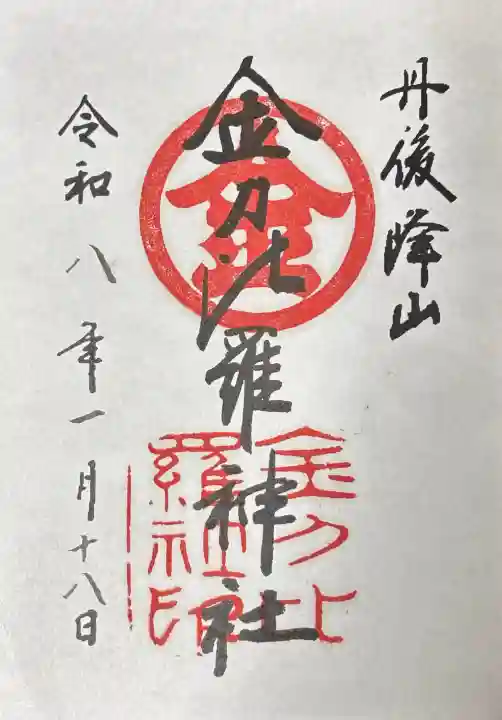 丹後峰山
金刀比羅神社
令和八年一月十八日
金